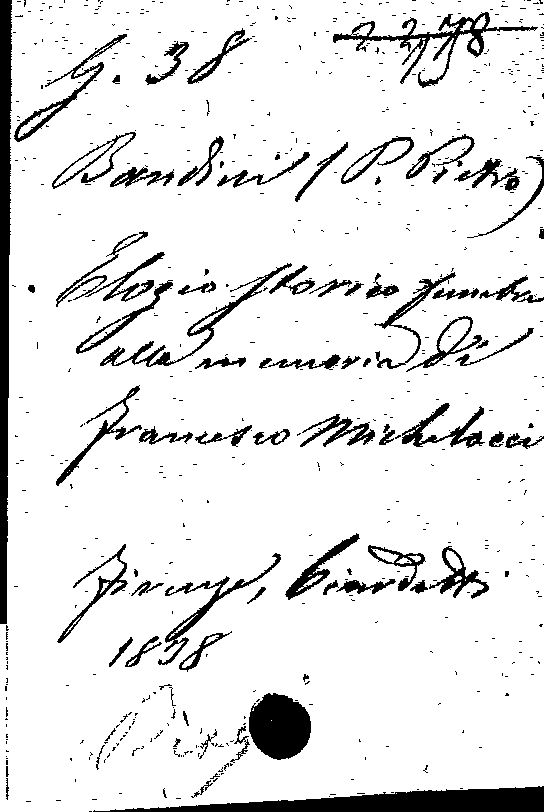 G. 38
Bandini (P. Pietro)
Elogio storico funebre
alla memoria di
Francesco Michelacci
Firenze, Ciardetti
1838